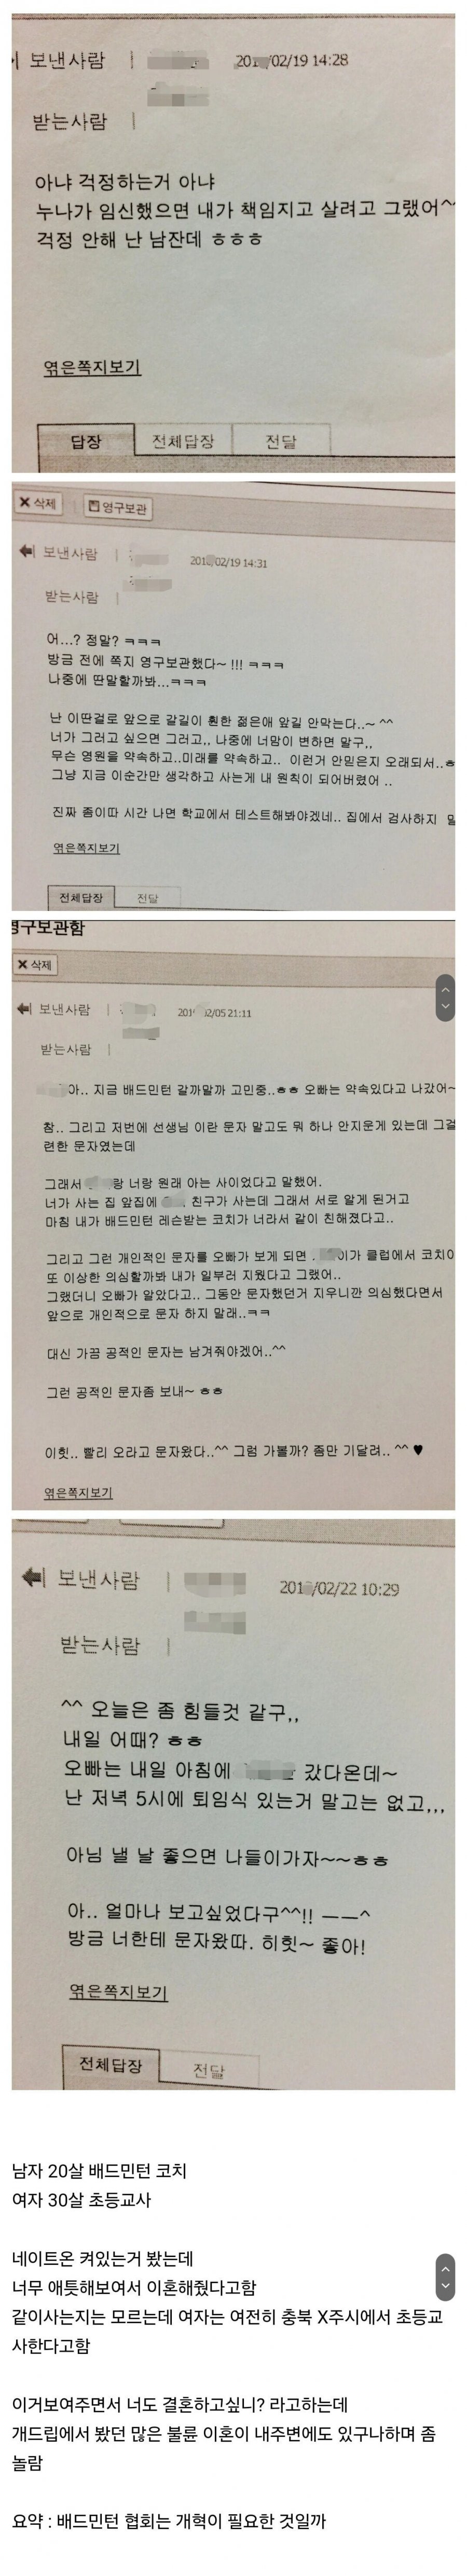 보낸사람
02/19 14:28
받는사람
아냐 걱정하는거 아냐
누나가 임신했으면 내가 책임지고 살려고 그랬어^^
걱정 안해 난 남잔데 ㅎㅎㅎ
엮은쪽지보기
답장 전체답장 전달
× 삭제 영구보관
보낸사람
02/19 14:31
받는사람
어...? 정말? ㅋㅋㅋ
방금 전에 쪽지 영구보관했다~ !!! ㅋㅋㅋ
나중에 딴말할까봐...ㅋㅋㅋ
난 이딴걸로 앞으로 갈길이 훤한 젊은애 앞길 안막는다..~ ^^
너가 그러고 싶으면 그러고,, 나중에 너맘이 변하면 말구,,
무슨 영원을 약속하고..미래를 약속하고.. 이런거 안믿은지 오래되서..ㅎ
그냥 지금 이순간만 생각하고 사는게 내 원칙이 되어버렸어 ..
진짜 좀이따 시간 나면 학교에서 테스트해봐야겠네.. 집에서 검사하지
엮은쪽지보기
전체답장 전달
영구보관함
× 삭제
보낸사람
02/05 21:11
받는사람
아.. 지금 배드민턴 갈까말까 고민중..ㅎㅎ 오빠는 약속있다고 나갔어~
참.. 그리고 저번에 선생님 이란 문자 말고도 뭐 하나 안지운게 있는데 그걸
련한 문자였는데
그래서 랑 너랑 원래 아는 사이었다고 말했어.
너가 사는 집 앞집에 친구가 사는데 그래서 서로 알게 된거고
마침 내가 배드민턴 레슨받는 코치가 너라서 같이 친해졌다고..
그리고 그런 개인적인 문자를 오빠가 보게 되면 이가 클럽에서 코치이
또 이상한 의심할까봐 내가 일부러 지웠다고 그랬어..
그랬더니 오빠가 알았다고.. 그동안 문자했던거 지우니깐 의심했다면서
앞으로 개인적으로 문자 하지 말래..ㅋㅋ
대신 가끔 공적인 문자는 남겨줘야겠어..^^
그런 공적인 문자좀 보내~ ㅎㅎ
이힛.. 빨리 오라고 문자왔다..^^ 그럼 가볼까? 좀만 기달려.. ^^ ♥
엮은쪽지보기
보낸사람
/02/22 10:29
받는사람
^^ 오늘은 좀 힘들것 같구,,
내일 어때? ㅎㅎ
오빠는 내일 아침에 갔다온데~
난 저녁 5시에 퇴임식 있는거 말고는 없고,,,
아님 낼 날 좋으면 나들이가자~~ㅎㅎ
아.. 얼마나 보고싶었다구^^!! ㅡㅡ^
방금 너한테 문자왔따. 히힛~ 좋아!
엮은쪽지보기
전체답장 전달
남자 20살 배드민턴 코치
여자 30살 초등교사
네이트온 켜있는거 봤는데
너무 애틋해보여서 이혼해줬다고함
같이사는지는 모르는데 여자는 여전히 충북 X주시에서 초등교
사한다고함
이거보여주면서 너도 결혼하고싶니? 라고하는데
개드립에서 봤던 많은 불륜 이혼이 내주변에도 있구나하며 좀
놀람
요약 : 배드민턴 협회는 개혁이 필요한 것일까